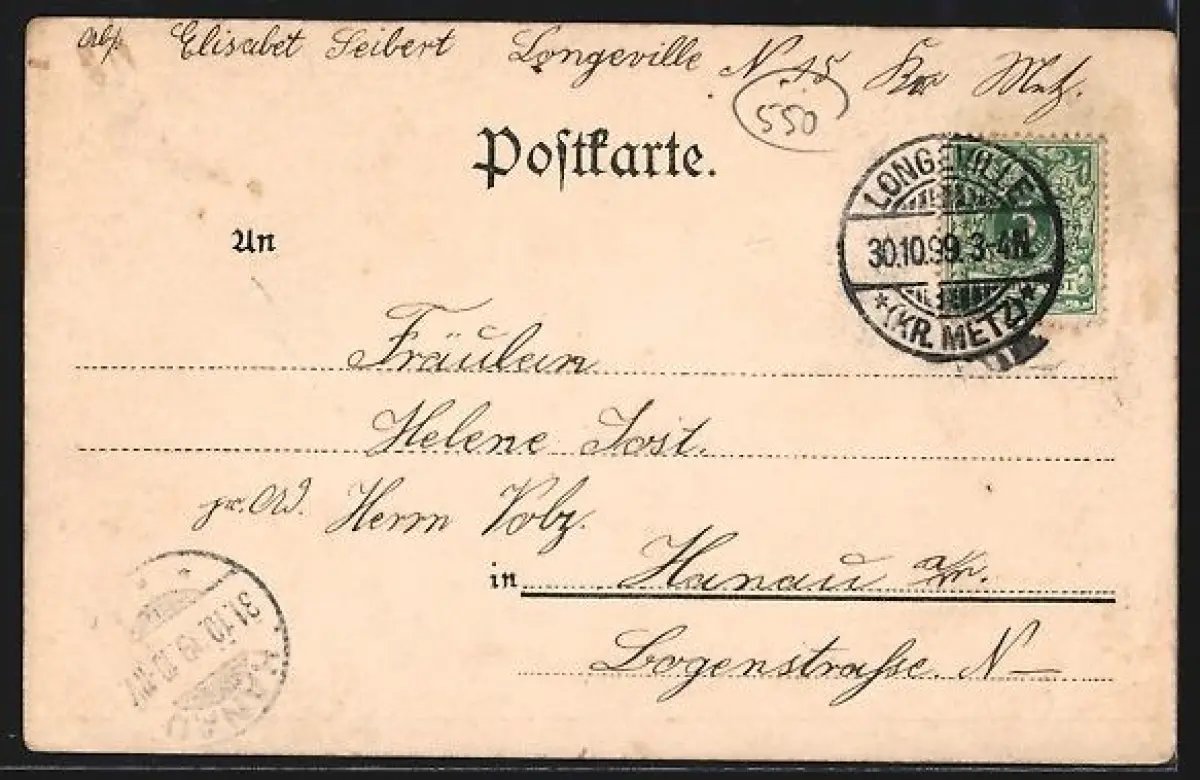 Abs. Elisabet Seibert Longeville N 15 Kr. Metz.
550
Postkarte.
LONGEVILLE
30.10.99. 3-4N.
*(KR. METZ)*
An
Fräulein
Helene Jost.
pr. Ad. Herrn Volz.
in Hanau a/m.
Logenstraße. N—
31.10
HANAU